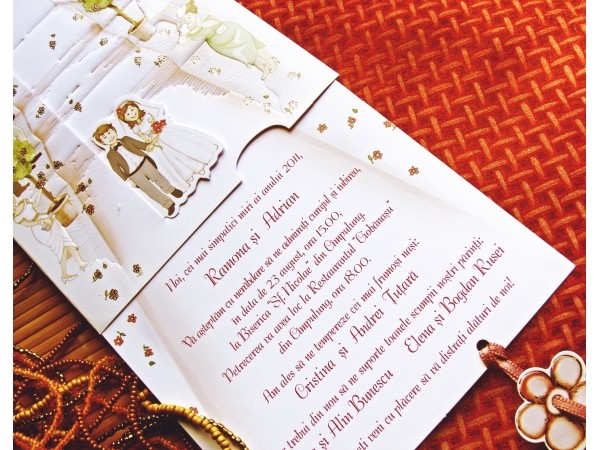 Noi, cei mai simpatici miri ai anului 2011,
Ramona și Adrian
Vă așteptăm cu nerăbdare să ne admirați curajul și iubirea,
în data de 23 august, ora 15.00,
la Biserica "Sf. Nicolae" din Câmpulung.
Petrecerea va avea loc la Restaurantul "Gobănașu"
din Câmpulung, ora 18.00.
Am ales să ne tempereze cei mai frumoși nași:
Cristina și Andrei Țuțară
trebui din nou să ne suporte toanele scumpii noștri părinți:
și Alin Bunescu Elena și Bogdan Rusei
veni cu plăcere să vă distrați alături de noi!